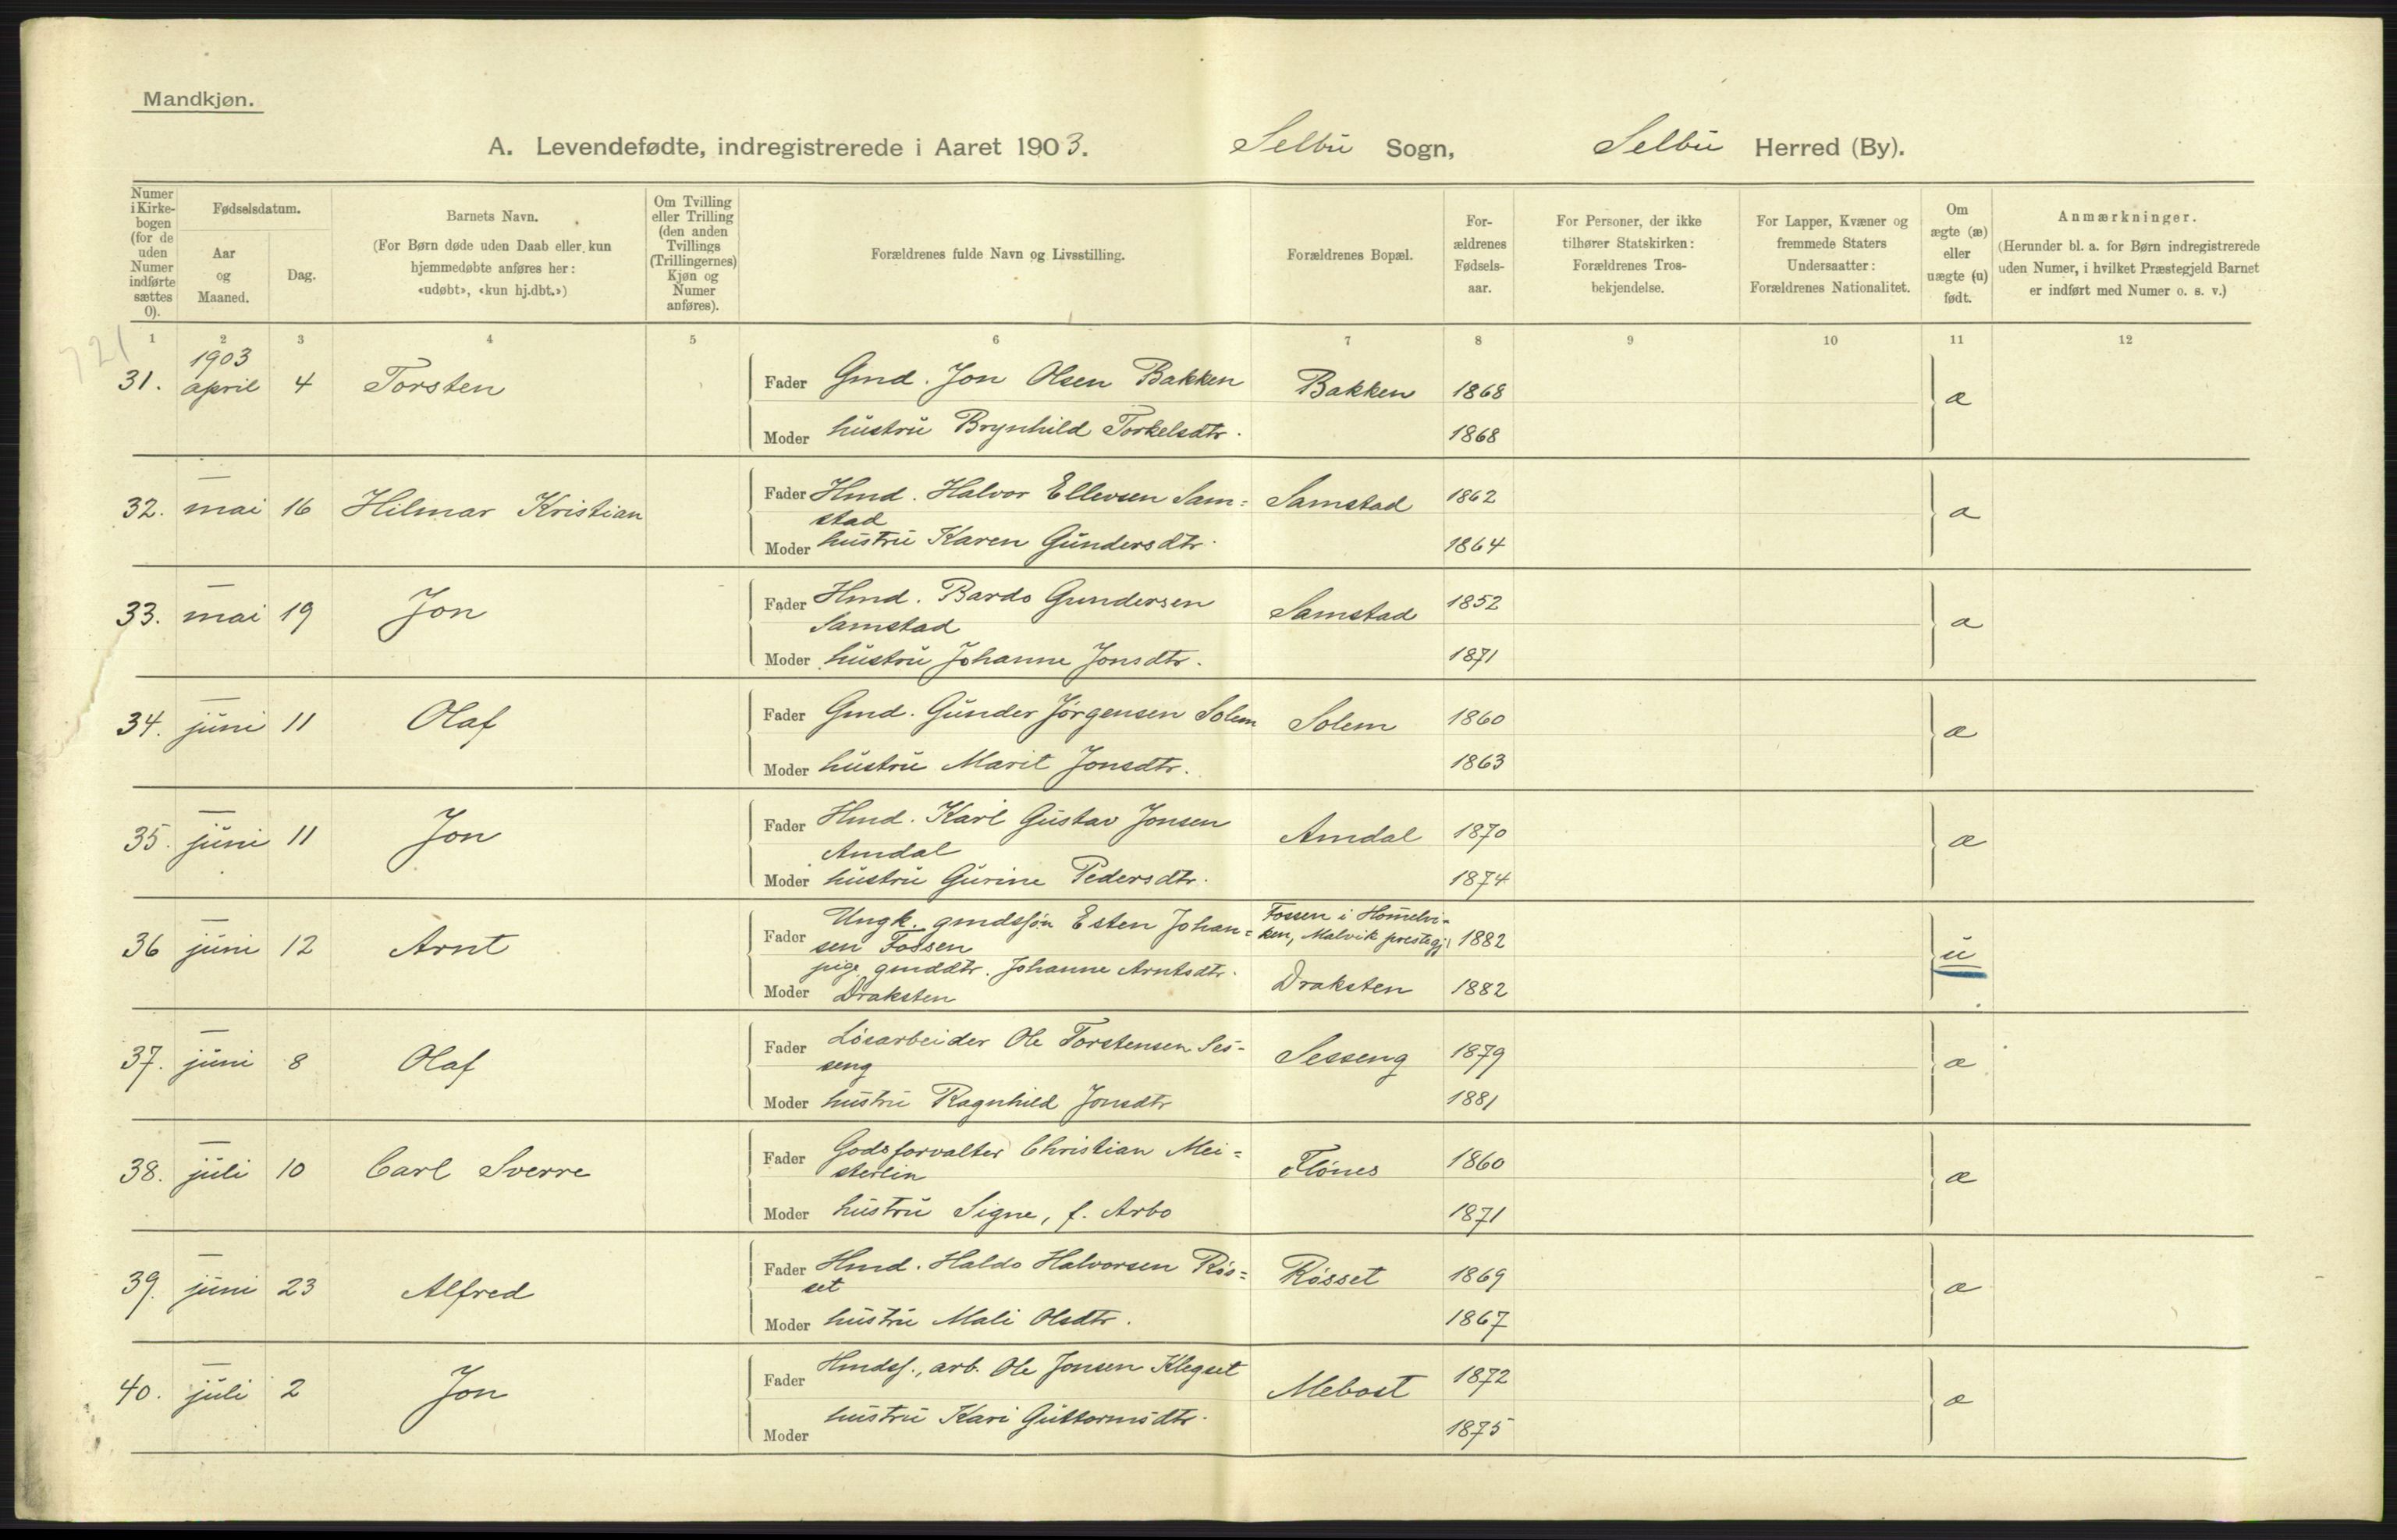 Mandkjøn.
A. Levendefødte, indregistrerede i Aaret 1903. Selbu Sogn, Selbu Herred (By).
Numer i Kirkebogen (for de uden Numer indførte sættes 0).
Fødselsdatum.
Aar og Maaned.
Dag.
Barnets Navn.
(For Børn døde uden Daab eller kun hjemmedøbte anføres her: «udøbt», «kun hj.dbt.»)
Om Tvilling eller Trilling (den anden Tvillings (Trillingernes) Kjøn og Numer anføres).
Forældrenes fulde Navn og Livsstilling.
Forældrenes Bopæl.
Forældrenes Fødselsaar.
For Personer, der ikke tilhører Statskirken: Forældrenes Trosbekjendelse.
For Lapper, Kvæner og fremmede Staters Undersaatter: Forældrenes Nationalitet.
Om ægte (æ) eller uægte (u) født.
Anmærkninger.
(Herunder bl. a. for Børn indregistrerede uden Numer, i hvilket Præstegjeld Barnet er indført med Numer o. s. v.)
1 2 3 4 5 6 7 8 9 10 11 12
721
1903
31. april 4 Torsten Fader Gmd. Jon Olsen Bakken Bakken 1868 æ
Moder hustru Brynhild Torkelsdtr. 1868
32. — mai 16 Hilmar Kristian Fader Hmd. Halvor Ellevsen Sam= Samstad 1862 æ
stad
Moder hustru Karen Gundersdtr. 1864
33. — mai 19 Jon Fader Hmd. Bardo Gundersen Samstad 1852 æ
Samstad
Moder hustru Johanne Jonsdtr. 1871
34. — juni 11 Olaf Fader Gmd. Gunder Jörgensen Solem Solem 1860 æ
Moder hustru Marit Jonsdtr. 1863
35. — juni 11 Jon Fader Hmd. Karl Gustav Jonsen Amdal 1870 æ
Amdal
Moder hustru Gurine Pedersdtr. 1874
36 — juni 12 Arnt Fader Ungk. gmdssön Esten Johan= Fossen i Hom̄elvi=
sen Fossen ken, Malvik prestegj. 1882 u
pige gmddtr. Johanne Arntsdtr.
Moder Draksten Draksten 1882
37. — juni 8 Olaf Fader Lösarbeider Ole Torstensen Ses= Sesseng 1879 æ
seng
Moder hustru Ragnhild Jonsdtr 1881
38. — juli 10 Carl Sverre Fader Godsforvalter Christian Mei= Flönes 1860 æ
sterlin
Moder hustru Signe, f. Arbo 1871
39. — juni 23 Alfred Fader Hmd. Haldo Halvorsen Rös= Rösset 1869 æ
set
Moder hustru Mali Olsdtr. 1867
40. — juli 2 Jon Fader Hmdss., arb. Ole Jonsen Klegset Mebost 1872 æ
Moder hustru Kari Guttormsdtr. 1875